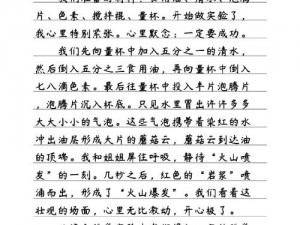 片、色素、搅拌棍、量杯。开始做实验了，
我心里特别紧张。心里默念：一定要成功。
我们先向量杯中加入五分之一的清水，
然后倒入五分之三食用油，再向量杯中倒入
七八滴色素。最后往量杯中投入半片泡腾片，
泡腾片沉入杯底。只见水里冒出许许多多
大大小小的气泡。这些气泡携带着染红的水
冲出油层形成大片的蘑菇云，蘑菇云到达油
的顶端。我和姐姐屏住呼吸，静待“火山喷
发”的一刻。几秒之后，红色的“岩浆”喷
涌而出，形成了“火山爆发”。我们看着这
壮观的场面，心里无比激动，开心极了。